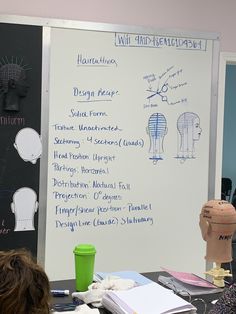 Haircutting
Design Recipe
Solid Form
Texture: Unactivated
Sectioning: 4 sections (quads)
Head Position: Upright
Partings: Horizontal
Distribution: Natural Fall
Projection: 0° degrees
Finger/shear position - Parallel
Design Line: (Guide) Stationary